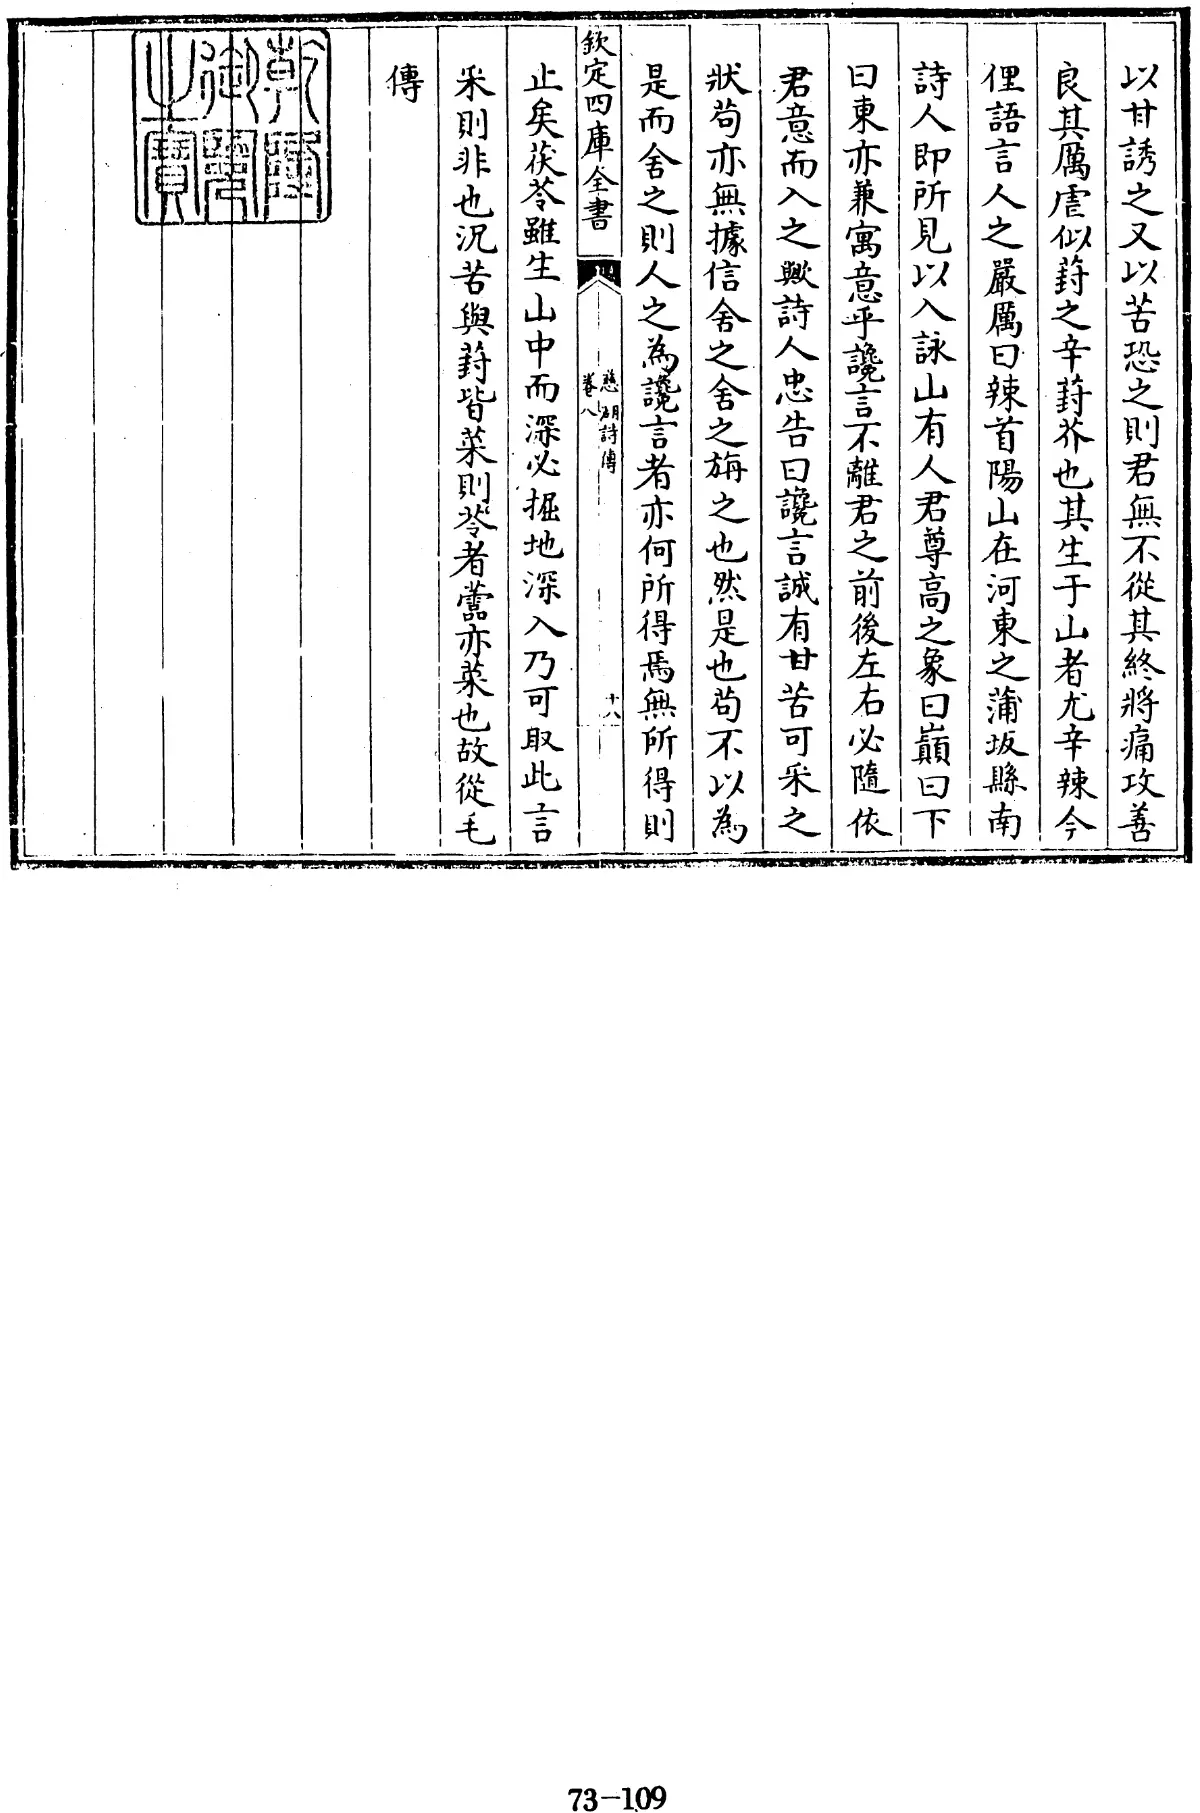 以甘誘之又以苦恐之則君無不從其終將痛攻善
良其厲虐似葑之辛葑芥也其生于山者尤辛辣今
俚語言人之嚴厲曰辣首陽山在河東之蒲坂縣南
詩人即所見以入詠山有人君尊高之象曰巔曰下
曰東亦兼寓意乎讒言不離君之前後左右必隨依
君意而入之歟詩人忠告曰讒言誠有甘苦可采之
狀苟亦無據信舍之舍之旃之也然是也苟不以為
是而舍之則人之為讒言者亦何所得焉無所得則
欽定四庫全書
慈湖詩傳
卷八
十八
止矣茯苓雖生山中而深必掘地深入乃可取此言
采則非也況苦與葑皆菜則苓者蘦亦菜也故從毛
傳
乾隆御覽之寶
73-109